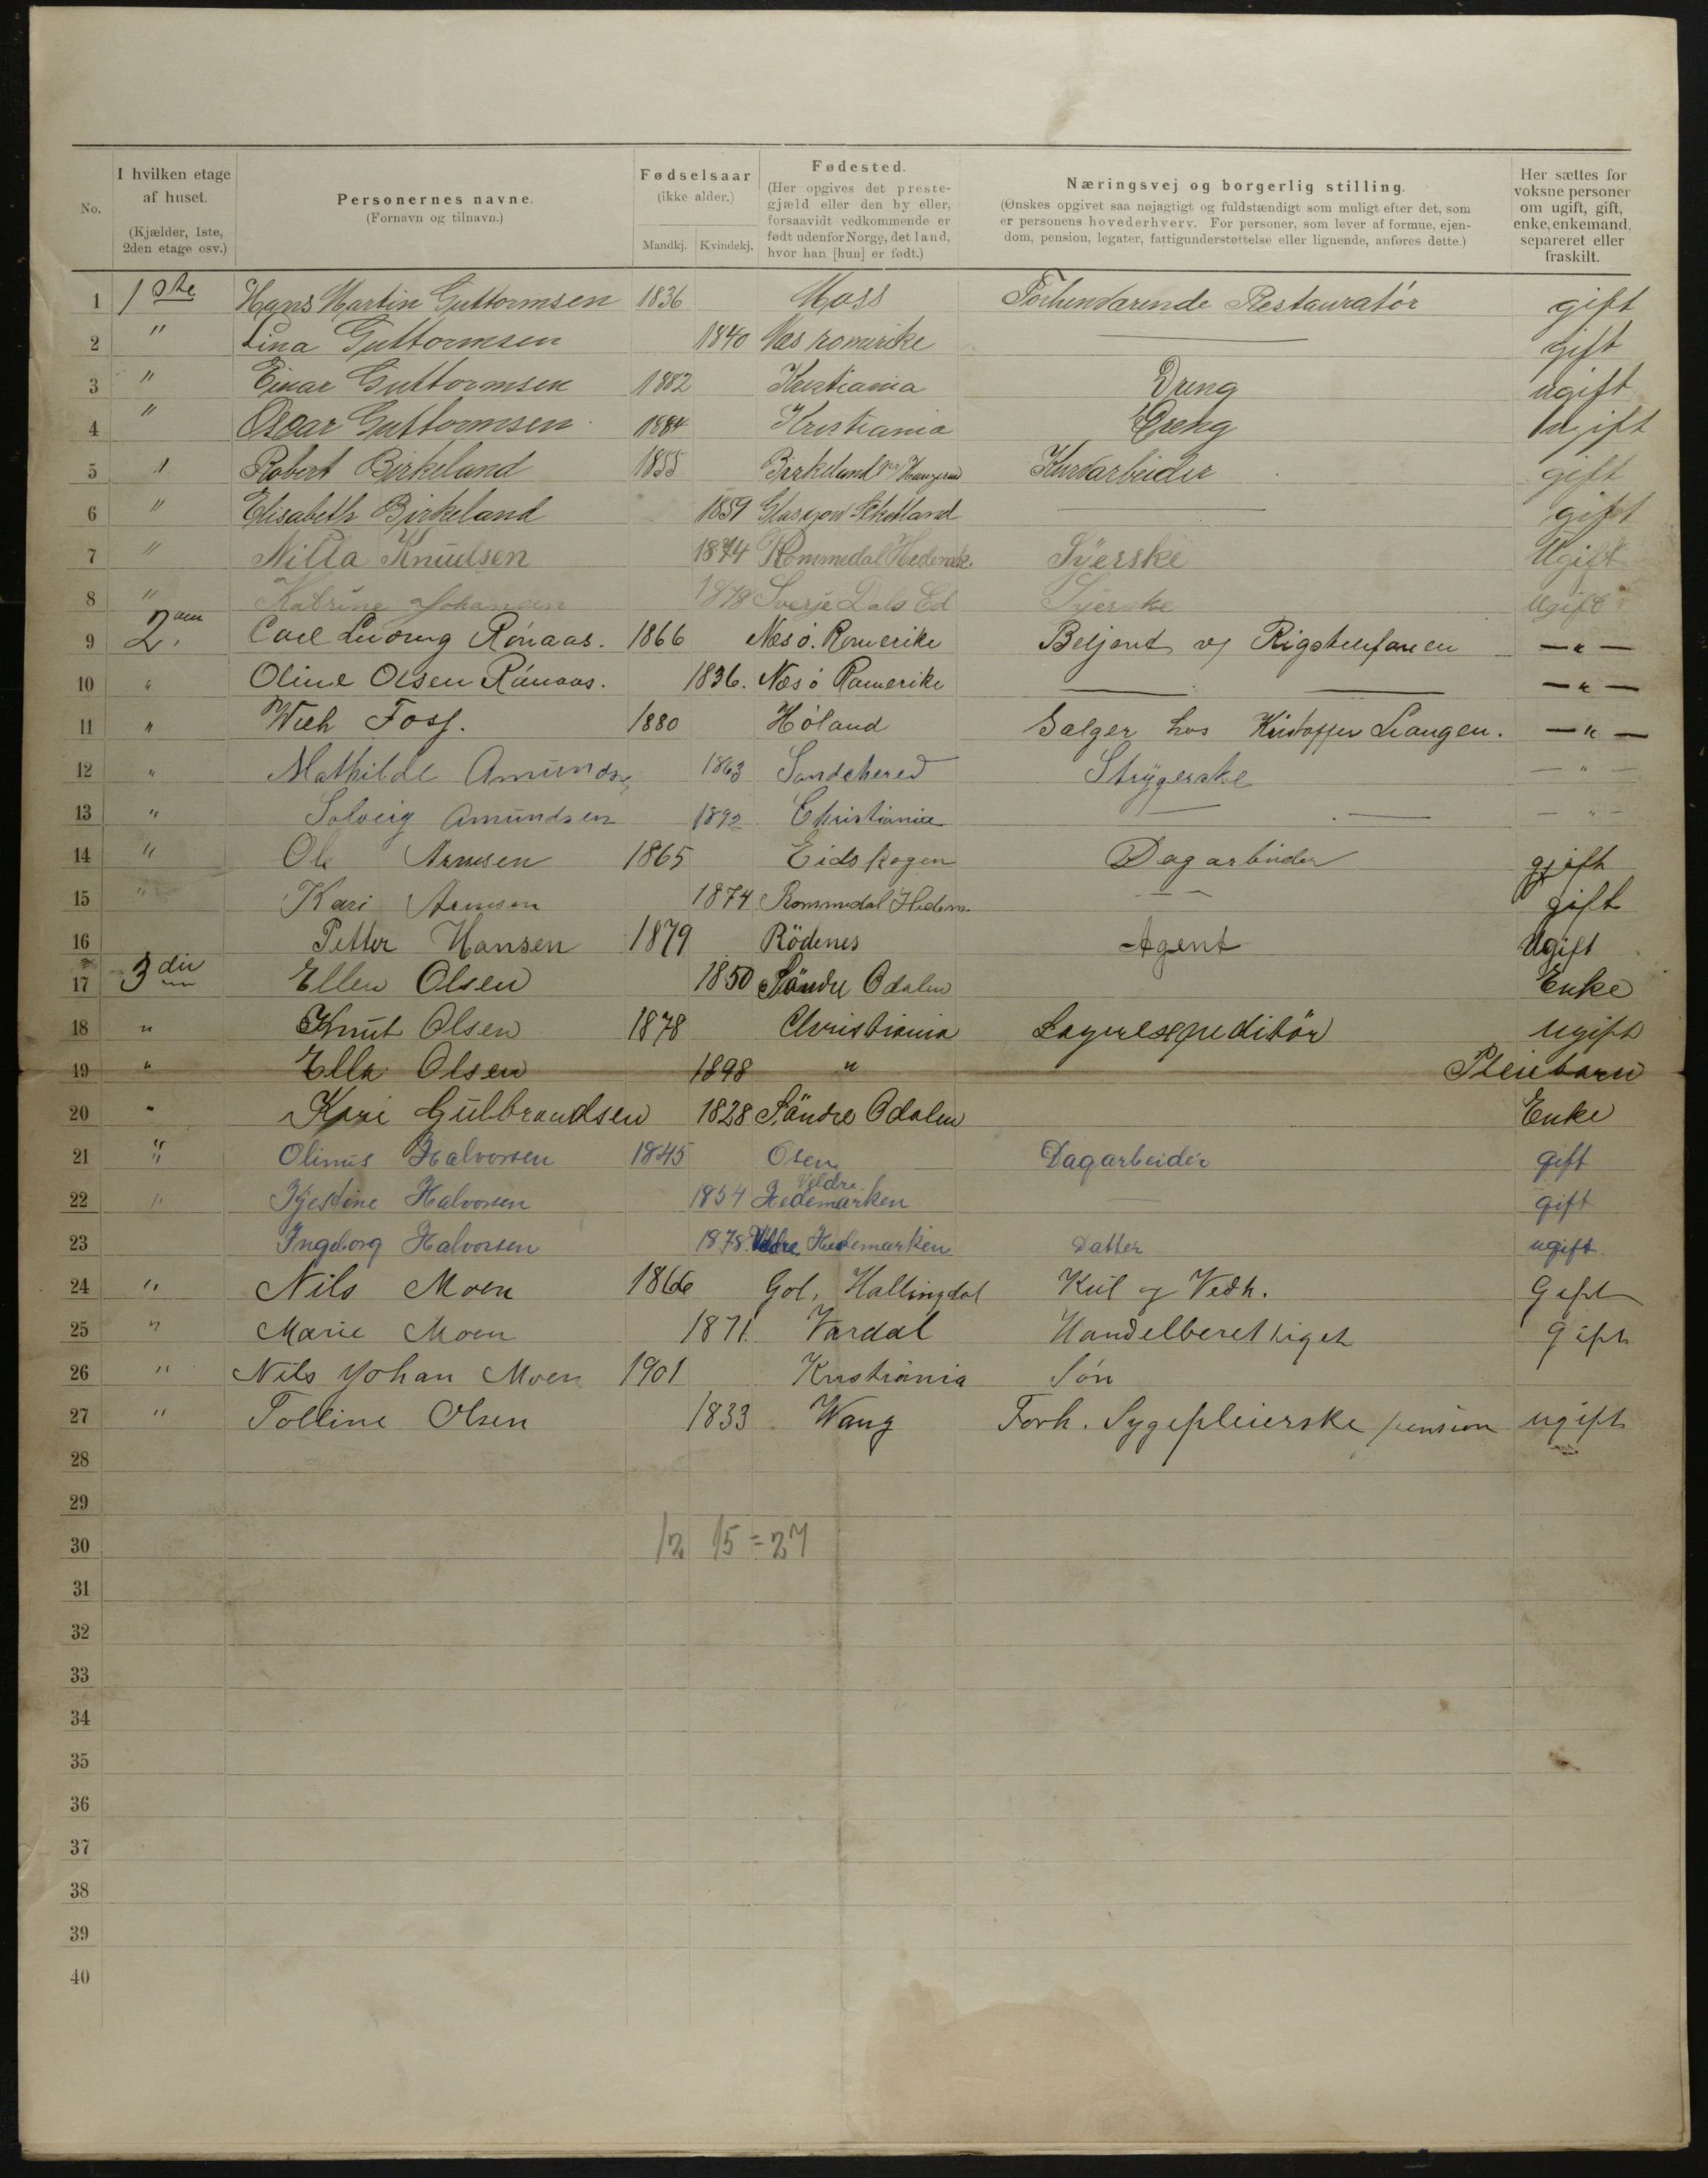 No.
I hvilken etage
af huset.
(Kjælder, 1ste,
2den etage osv.)
Personernes navne.
(Fornavn og tilnavn.)
Fødselsaar
(ikke alder.)
Mandkj. Kvindekj.
Fødested.
(Her opgives det preste-
gjæld eller den by eller,
forsaavidt vedkommende er
født udenfor Norge, det land,
hvor han [hun] er født.)
Næringsvej og borgerlig stilling.
(Ønskes opgivet saa nøjagtigt og fuldstændigt som muligt efter det, som
er personens hovederhverv. For personer, som lever af formue, ejen-
dom, pension, legater, fattigunderstøttelse eller lignende, anføres dette.)
Her sættes for
voksne personer
om ugift, gift,
enke, enkemand,
separeret eller
fraskilt.
1 1ste Hans Martin Guttormsen 1836 Moss Forhenværende Restauratór gift
2 " Lina Guttormsen 1840 Næs romerike — gift
3 " Einar Guttormsen 1882 Kristiania Dreng ugift
4 " Oscar Guttormsen 1884 Kristiania Dreng Ugift
5 " Robert Birkeland 1855 Birkeland gift
6 " Elisabeth Birkeland 1859 Glasgow Skotland — gift
7 " Nilla Knudsen 1874 Rommedal Hedemk. Syerske Ugift
8 " Katrine Johansen 1878 Sverje Dals Ed Syerske Ugift
9 2. Carl Ludvig Rónaas. 1866 Næs ó. Romerike Betjent v/ Rigstelefonen — " —
10 " Oline Olsen Rónaas. 1836. Næs ó Romerike — — — " —
11 " Foss. 1880 Hóland Sælger hos Kristoffer Langen. — " —
12 " Mathilde Amundsen 1863 Sandeherred Strygerske — " —
13 " Solveig Amundsen 1892 Christiania — — — " —
14 " Ole Arnesen 1865 Eidskogen Dagarbeider gjift
15 " Kari Arnesen 1874 Rommedal Hedem. — — gift
16 Petter Hansen 1879 Rödenes Agent Ugift
17 3die Ellen Olsen 1850 Söndre Odalen Enke
18 " Knut Olsen 1878 Christiania Lagerexpeditör ugift
19 " Ella Olsen 1898 " Pleiebarn
20 " Kari Gulbrandsen 1828 Söndre Odalen Enke
21 " Olinus Halvorsen 1845 Osen Dagarbeider gift
22 " Kjestine Halvorsen 1854 Veldre Hedemarken gift
23 Ingeborg Halvorsen 1878. Veldre Hedemarken Datter ugift
24 " Nils Moen 1866 Gol, Hallingdal Kul og Vedh. Gift
25 " Marie Moen 1871. Vardal Handelberettiget Gift
26 " Nils Johan Moen 1901 Kristiania Són
27 " Tolline Olsen 1833 Wang Forh. Sygepleierske pension ugift
28
29
30 12 15 = 27
31
32
33
34
35
36
37
38
39
40